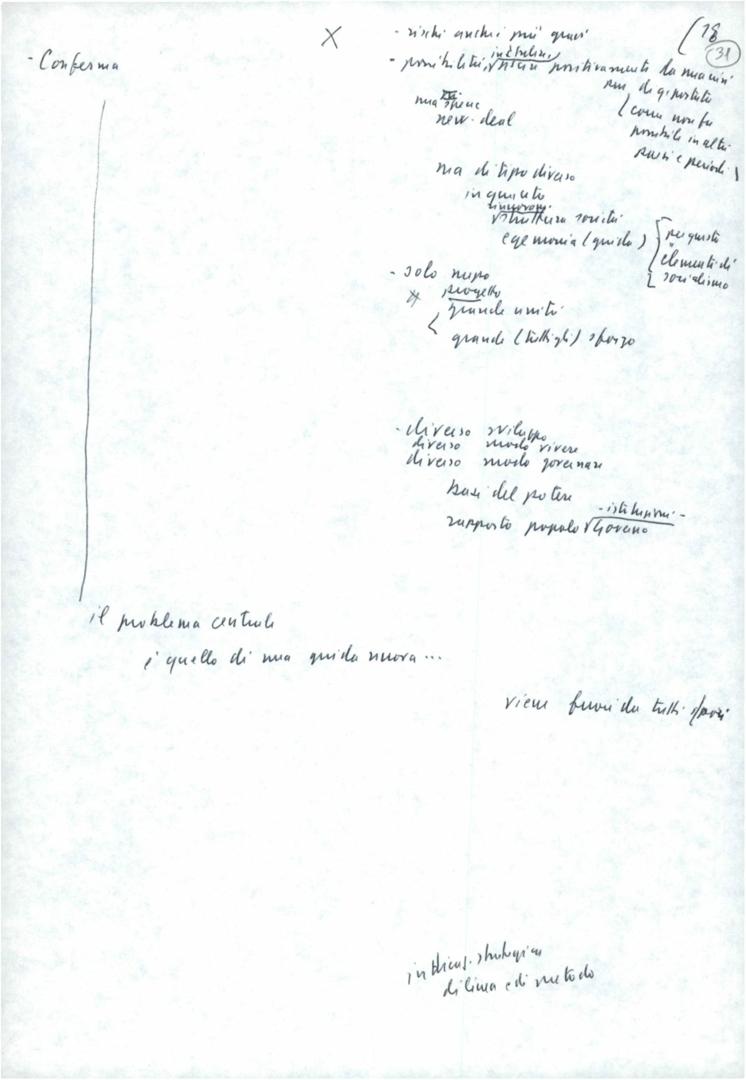 (18
31
X
- Conferma
- rischi anche più gravi
- possibilità, positivamente da una crisi
di q. portata
(come non fu
possibile in altri
paesi e periodi)
una specie
new-deal
ma di tipo diverso
in quanto
struttura società
egemonia (guida)
per questo
elementi di
socialismo
- solo nuovo
progetto
grande unità
grande (tutti gli) sforzo
- diverso sviluppo
diverso modo vivere
diverso modo governare
basi del potere
- istituzioni -
rapporto popolo Governo
il problema centrale
è quello di una guida nuova...
viene fuori da tutti
di linea e di metodo